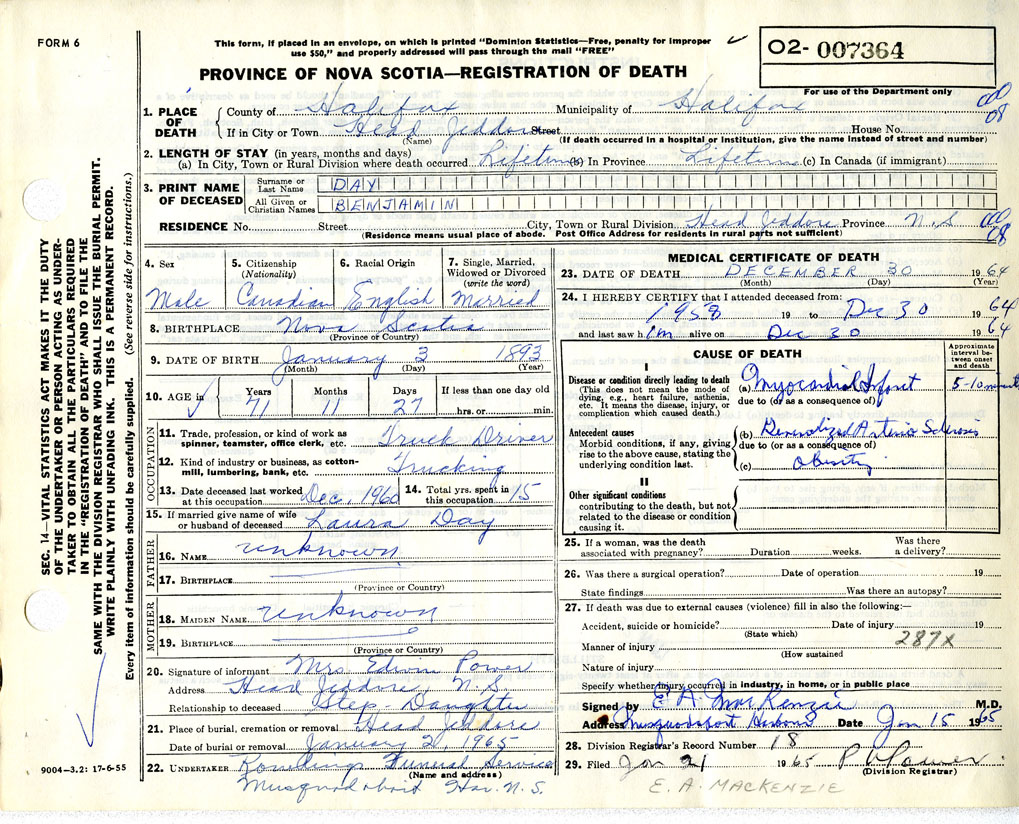 FORM 6
This form, if placed in an envelope, on which is printed "Dominion Statistics—Free, penalty for improper
use $50," and properly addressed will pass through the mail "FREE"
O2- 007364
For use of the Department only
PROVINCE OF NOVA SCOTIA—REGISTRATION OF DEATH
1. PLACE OF DEATH County of Halifax Municipality of Halifax
If in City or Town Head Jeddore Street House No.
(Name) (If death occurred in a hospital or institution, give the name instead of street and number)
08
2. LENGTH OF STAY (in years, months and days)
(a) In City, Town or Rural Division where death occurred Lifetime (b) In Province Lifetime (c) In Canada (if immigrant)
3. PRINT NAME OF DECEASED
Surname or Last Name DAY
All Given or Christian Names BENJAMIN
RESIDENCE No. Street City, Town or Rural Division Head Jeddore Province N.S
(Residence means usual place of abode. Post Office Address for residents in rural parts not sufficient)
08
4. Sex 5. Citizenship (Nationality) 6. Racial Origin 7. Single, Married, Widowed or Divorced (write the word)
Male Canadian English Married
8. BIRTHPLACE Nova Scotia
(Province or Country)
9. DATE OF BIRTH January 3 1893
(Month) (Day) (Year)
10. AGE in Years Months Days If less than one day old
71 11 27 hrs. or min.
OCCUPATION
11. Trade, profession, or kind of work as spinner, teamster, office clerk, etc. Truck Driver
12. Kind of industry or business, as cotton-mill, lumbering, bank, etc. Trucking
13. Date deceased last worked at this occupation Dec. 1960 14. Total yrs. spent in this occupation 15
15. If married give name of wife or husband of deceased Laura Day
FATHER
16. NAME unknown
17. BIRTHPLACE
(Province or Country)
MOTHER
18. MAIDEN NAME unknown
19. BIRTHPLACE
(Province or Country)
20. Signature of informant Mrs. Edwin Power
Address Head Jeddore, N.S.
Relationship to deceased Step-Daughter
21. Place of burial, cremation or removal Head Jeddore
Date of burial or removal January 2, 1965
22. UNDERTAKER Rowlings Funeral Service
(Name and address)
Musquodoboit Har. N.S.
MEDICAL CERTIFICATE OF DEATH
23. DATE OF DEATH DECEMBER 30 1964
(Month) (Day) (Year)
24. I HEREBY CERTIFY that I attended deceased from:
1958 19 to Dec 30 1964
and last saw him alive on Dec 30 1964
CAUSE OF DEATH
Approximate interval between onset and death
I
Disease or condition directly leading to death
(This does not mean the mode of dying, e.g., heart failure, asthenia, etc. It means the disease, injury, or complication which caused death.)
(a) Myocardial Infarct 5-10 minutes
due to (or as a consequence of)
Antecedent causes
Morbid conditions, if any, giving rise to the above cause, stating the underlying condition last.
(b) Generalized Arterio Sclerosis
due to (or as a consequence of)
(c) Obesity
II
Other significant conditions
contributing to the death, but not related to the disease or condition causing it.
25. If a woman, was the death associated with pregnancy? Duration weeks. Was there a delivery?
26. Was there a surgical operation? Date of operation 19
State findings Was there an autopsy?
27. If death was due to external causes (violence) fill in also the following:—
Accident, suicide or homicide? Date of injury 19
(State which) 287X
Manner of injury
(How sustained
Nature of injury
Specify whether injury occurred in industry, in home, or in public place
Signed by E. A. MacKenzie M.D.
Address Musquodoboit Harbour Date Jan 15 1965
28. Division Registrar's Record Number 18
29. Filed Jan 21 1965
(Division Registrar)
E. A. MACKENZIE
SEC. 14—VITAL STATISTICS ACT MAKES IT THE DUTY
OF THE UNDERTAKER OR PERSON ACTING AS UNDER-
TAKER TO OBTAIN ALL THE PARTICULARS REQUIRED
IN THE "REGISTRATION OF DEATH" AND TO FILE THE
SAME WITH THE DIVISION REGISTRAR WHO SHALL ISSUE THE BURIAL PERMIT.
WRITE PLAINLY WITH UNFADING INK. THIS IS A PERMANENT RECORD.
Every item of information should be carefully supplied. (See reverse side for instructions.)
9004—3.2: 17-6-55